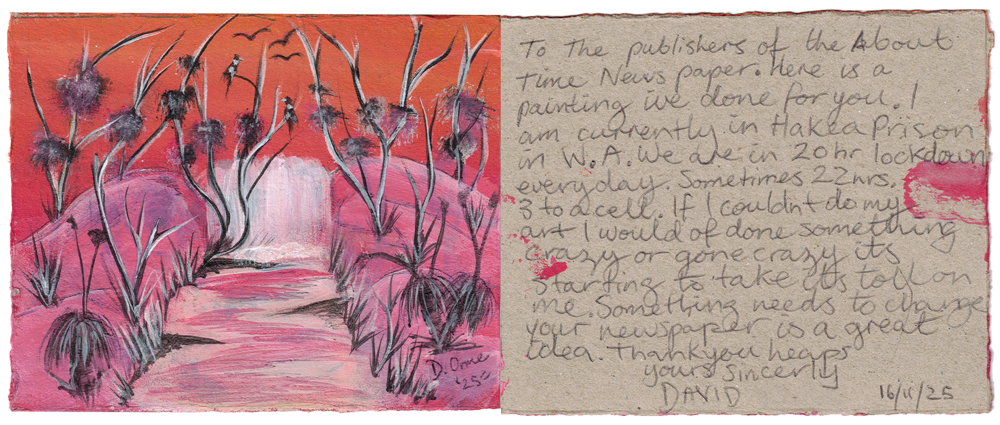 D. Orme
'25
To The publishers of the About
Time News paper. Here is a
painting ive done for you. I
am currently in Hakea Prison
in W.A. We are in 20hr lockdown
everyday. Sometimes 22hrs.
3 to a cell. If I couldnt do my
art I would of done something
crazy or gone crazy its
starting to take its toll on
me. Something needs to change
your newspaper is a great
idea. Thankyou heaps
yours sincerly
DAVID 16/11/25